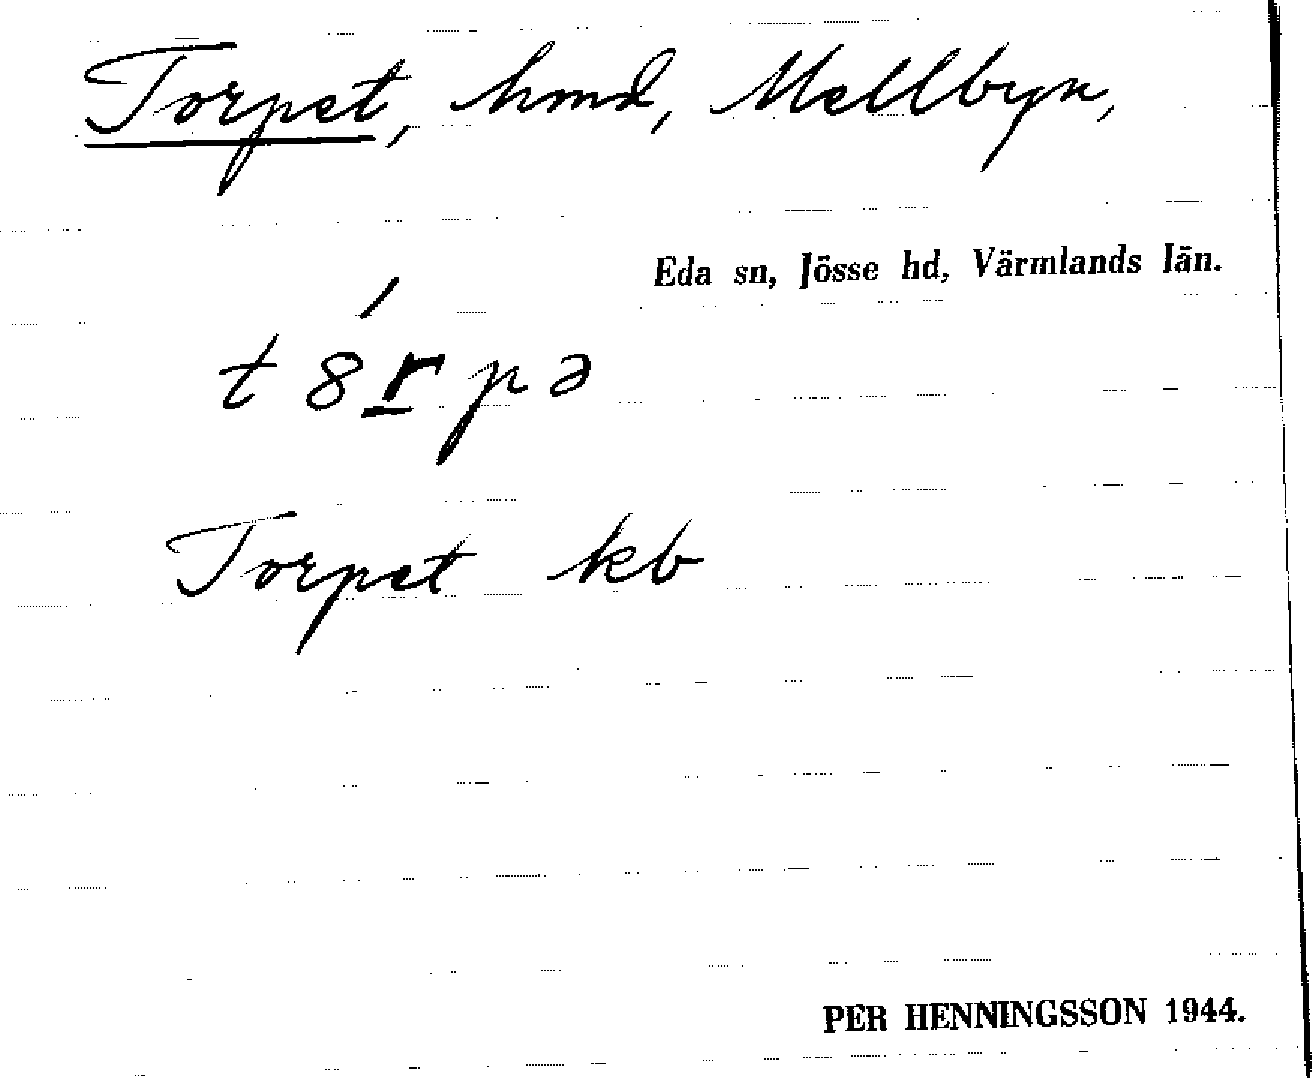 Torpet, hmd, Mellbyn,
Eda sn, Jösse hd, Värmlands län.
t8́rpə
Torpet kb
PER HENNINGSSON 1944.